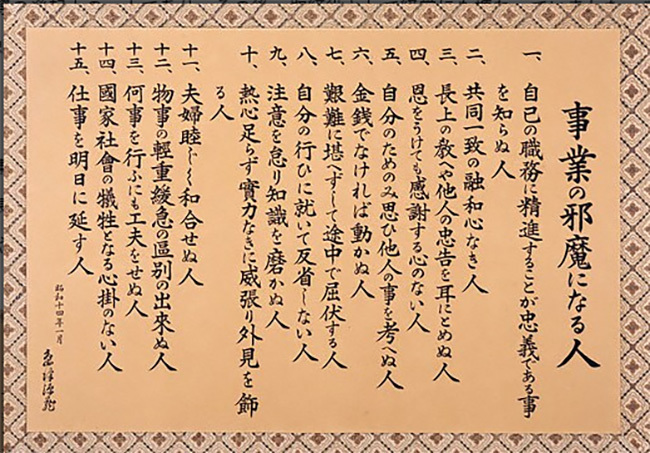 事業の邪魔になる人
一、自己の職務に精進することが忠義である事
を知らぬ人
二、共同一致の融和心なき人
三、長上の教へや他人の忠告を耳にとめぬ人
四、恩をうけても感謝する心のない人
五、自分のためのみ思ひ他人の事を考へぬ人
六、金銭でなければ動かぬ人
七、艱難に堪へずして途中で屈伏する人
八、自分の行ひに就いて反省しない人
九、注意を怠り知識を磨かぬ人
十、熱心足らず實力なきに威張り外見を飾
る人
十一、夫婦睦じく和合せぬ人
十二、物事の輕重緩急の區別の出來ぬ人
十三、何事を行ふにも工夫をせぬ人
十四、國家社會の犠牲となる心掛のない人
十五、仕事を明日に延す人
昭和十四年一月